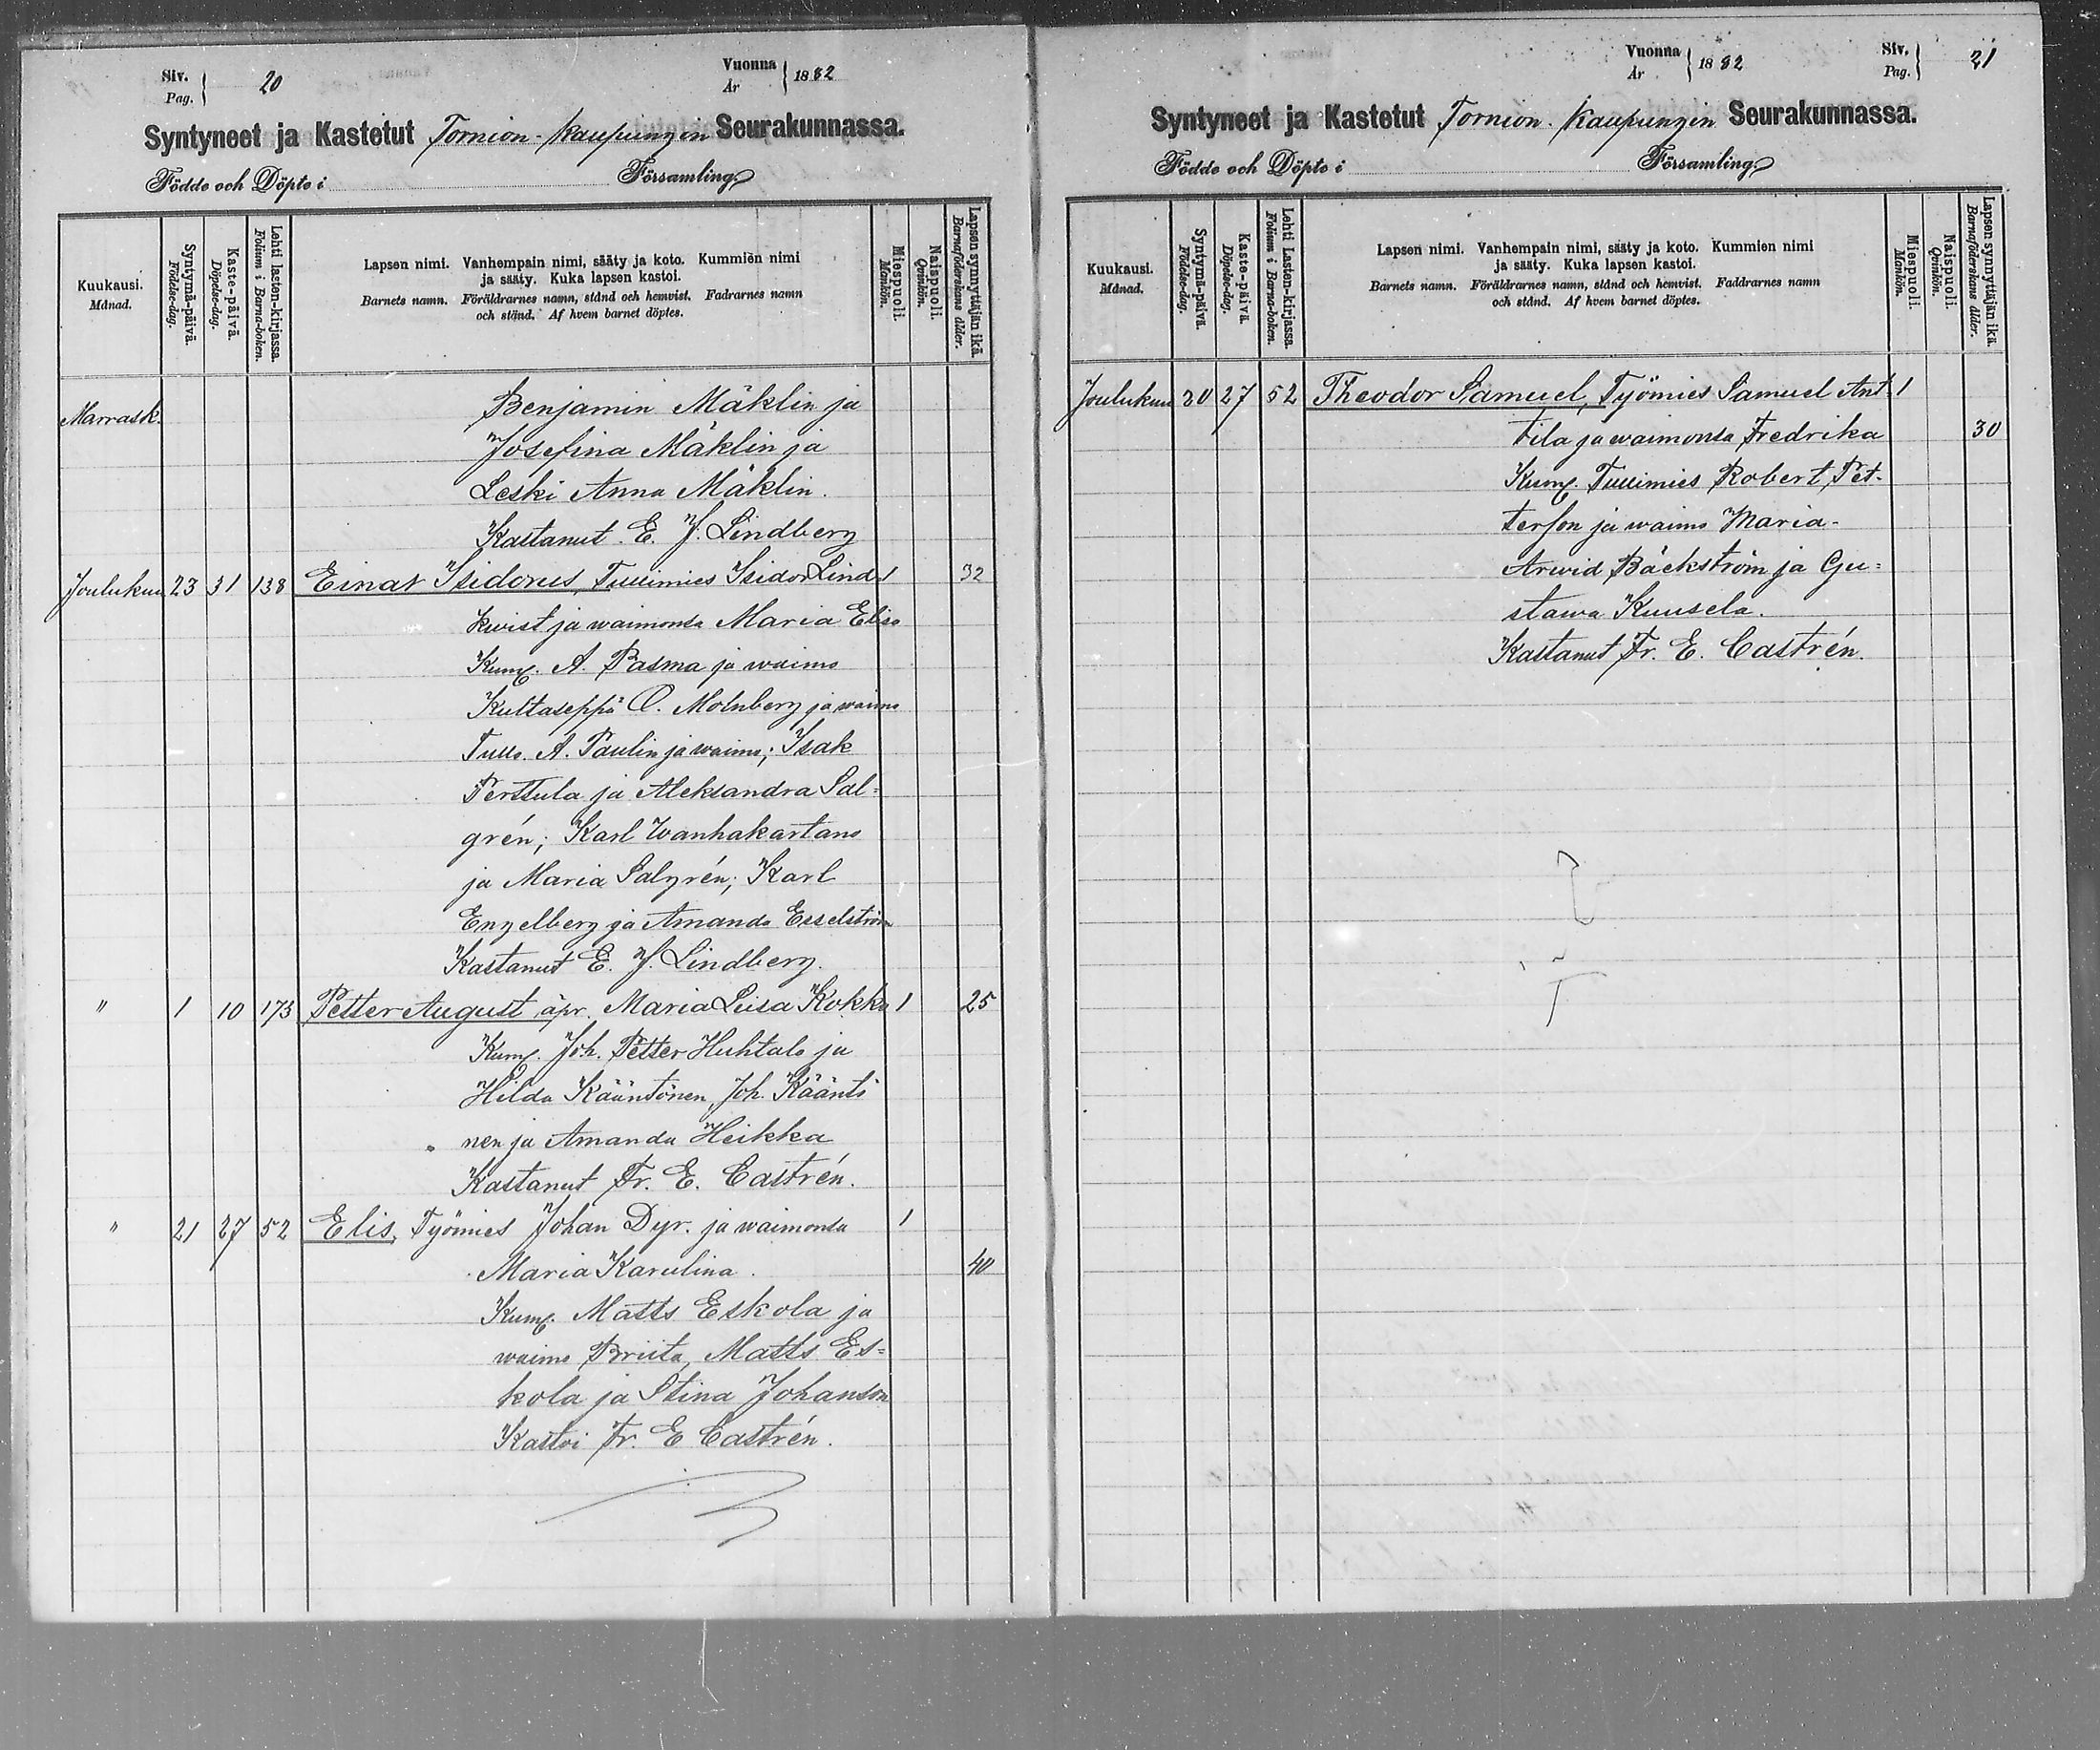 Siv. 20 Vuonna 1882
Pag. År
Syntyneet ja Kastetut Tornion-kaupungin Seurakunnassa.
Födde och Döpte i Församling
Kuukausi. Månad.
Syntymä-päivä. Födelse-dag.
Kaste-päivä. Döpelse-dag.
Lehti lasten-kirjassa. Folium i Barna-boken.
Lapsen nimi. Vanhempain nimi, sääty ja koto. Kummien nimi
ja sääty. Kuka lapsen kastoi.
Barnets namn. Föräldrarnes namn, stånd och hemvist. Fadrarnes namn
och stånd. Af hvem barnet döptes.
Miespuoli. Mankön.
Naispuoli. Qvinkön.
Lapsen synnyttäjän ikä. Barnaföderskans ålder.
Marrask. Benjamin Mäklin ja
Josefina Mäklin ja
Leski Anna Mäklin.
Kastanut E. J. Lindberg
Joulukuu 23 31 138 Einar Isidorus, Tullimies Isidor Lind- 1 32
kwist ja waimonsa Maria Elisa
Kum. A. Pasma ja waimo
Kultaseppä O. Molnberg ja waimo
Tull. A. Paulin ja waimo; Isak
Perttula ja Aleksandra Sal=
grén; Karl Wanhakartano
ja Maria Salgrén; Karl
Engelberg ja Amanda Esselström
Kastanut E. J. Lindberg.
" 1 10 173 Petter August, äpr. Maria Leisa Kokko 1 25
Kum. Joh. Petter Huhtala ja
Hilda Kääntönen, Joh. Kääntö
nen ja Amanda Heikka
Kastanut Fr. E. Castrén.
" 21 27 52 Elis, Työmies Johan Dyr. ja waimonsa 1
Maria Karulina. 40
Kum. Matts Eskola ja
waimo Briita, Matts Es=
kola ja Stina Johanson
Kastoi Fr. E Castrén.
Vuonna 1882 Siv. 21
År Pag.
Syntyneet ja Kastetut Tornion-kaupungin Seurakunnassa.
Födde och Döpte i Församling
Kuukausi. Månad.
Syntymä-päivä. Födelse-dag.
Kaste-päivä. Döpelse-dag.
Lehti Lasten-kirjassa. Folium i Barna-boken.
Lapsen nimi. Vanhempain nimi, sääty ja koto. Kummien nimi
ja sääty. Kuka lapsen kastoi.
Barnets namn. Föräldrarnes namn, stånd och hemvist. Faddrarnes namn
och stånd. Af hvem barnet döptes.
Miespuoli. Mankön.
Naispuoli. Qvinkön.
Lapsen synnyttäjän ikä. Barnaföderskans ålder.
Joulukuu 30 27 52 Theodor Samuel, Työmies Samuel Ant- 1
tila ja waimonsa Fredrika 30
Kum. Tullimies Robert Pet-
terson ja waimo Maria-
Arwid Bäckström ja Gu=
stawa Kuusela.
Kastanut Fr. E. Castrén.